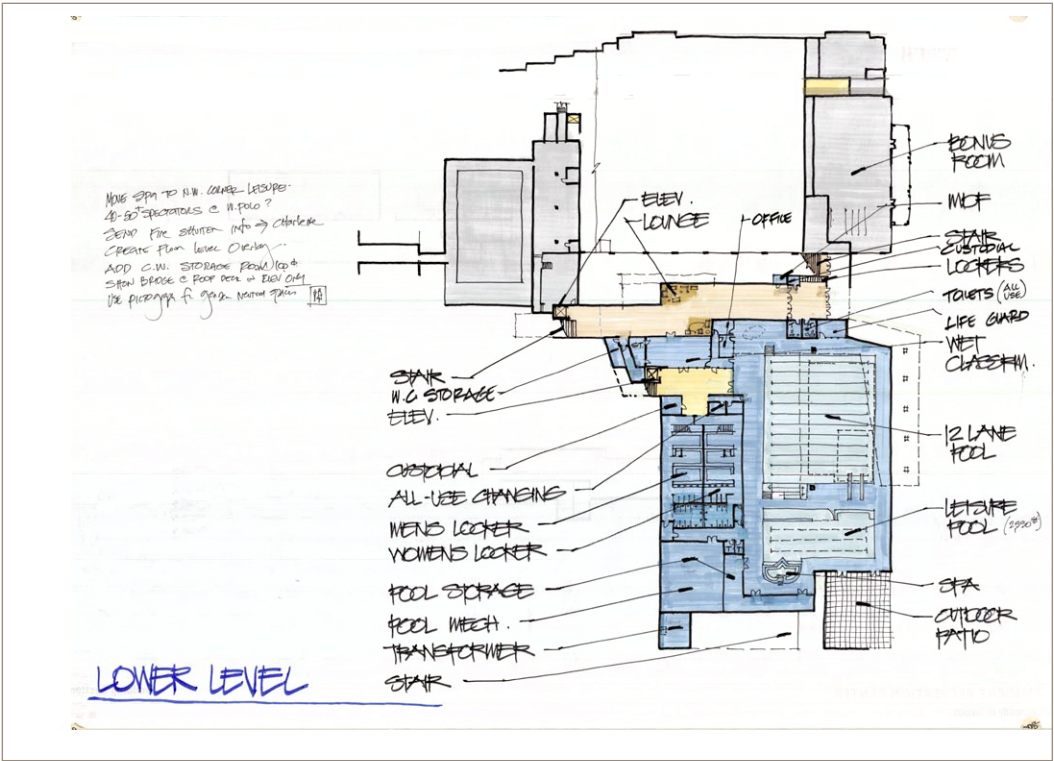 MOVE SPA TO N.W. CORNER LEISURE-
40-50± SPECTATORS @ W. POLO ?
SEND FIRE SHUTTER INFO → Charlene
CREATE FLOOR LEVEL Overlay
ADD C.W. STORAGE ROOM
SHOW BRIDGE @ ROOF DECK & ELEV ONLY
USE pictograph for gender neutral
ELEV.
LOUNGE
OFFICE
BONUS
ROOM
MOF
STAIR
CUSTODIAL
LOCKERS
TOILETS (ALL USE)
LIFE GUARD
WET
CLASSRM.
12 LANE
POOL
LEISURE
POOL
SPA
OUTDOOR
PATIO
STAIR
W.C STORAGE
ELEV.
CUSTODIAL
ALL-USE CHANGING
MENS LOCKER
WOMENS LOCKER
POOL STORAGE
POOL MECH.
TRANSFORMER
STAIR
LOWER LEVEL